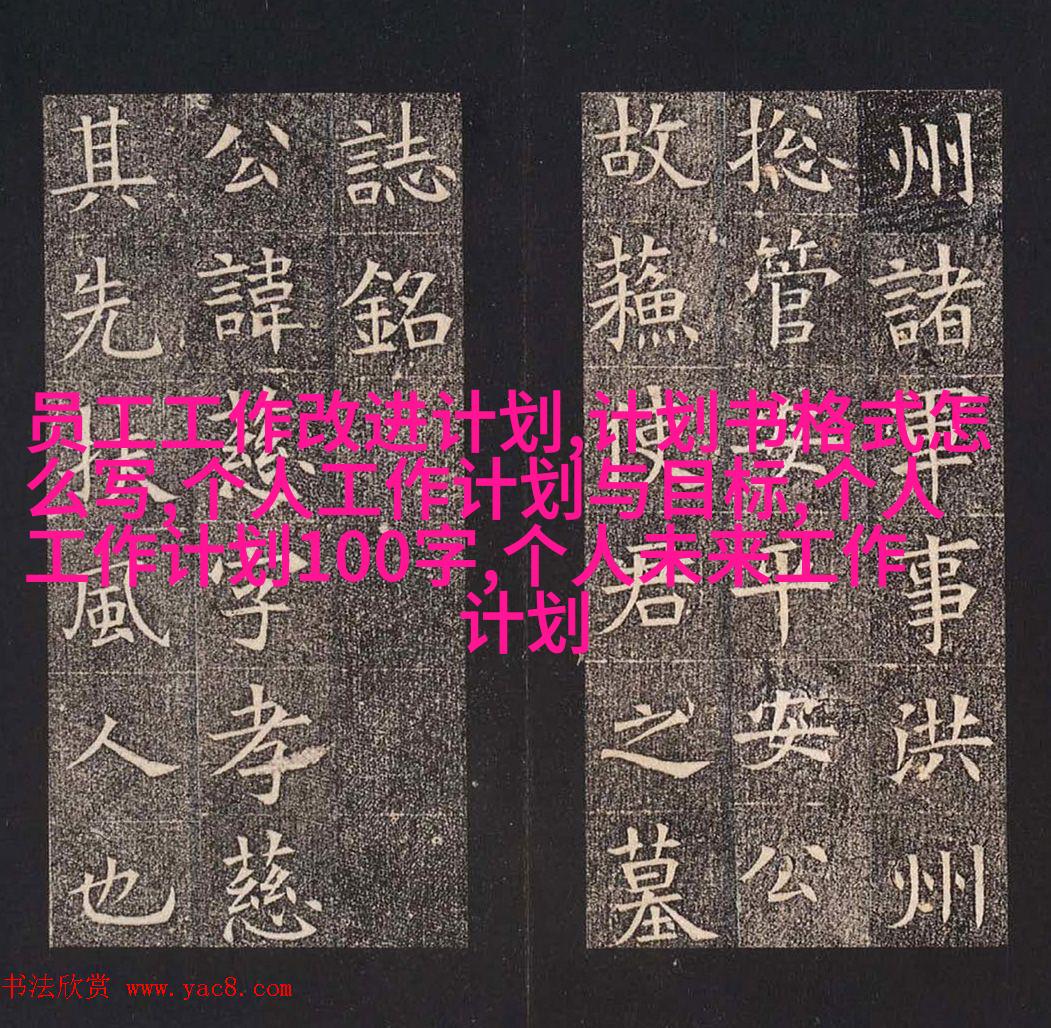 州諸軍事洪州
揔管安平安公
故蘓使君之墓
誌銘
公諱慈字孝慈
其先扶風人也
员工工作改进计划,计划书格式怎
么写,个人工作计划与目标,个人
工作计划100字,个人未来工作
计划
书法欣赏 www.yac8.com